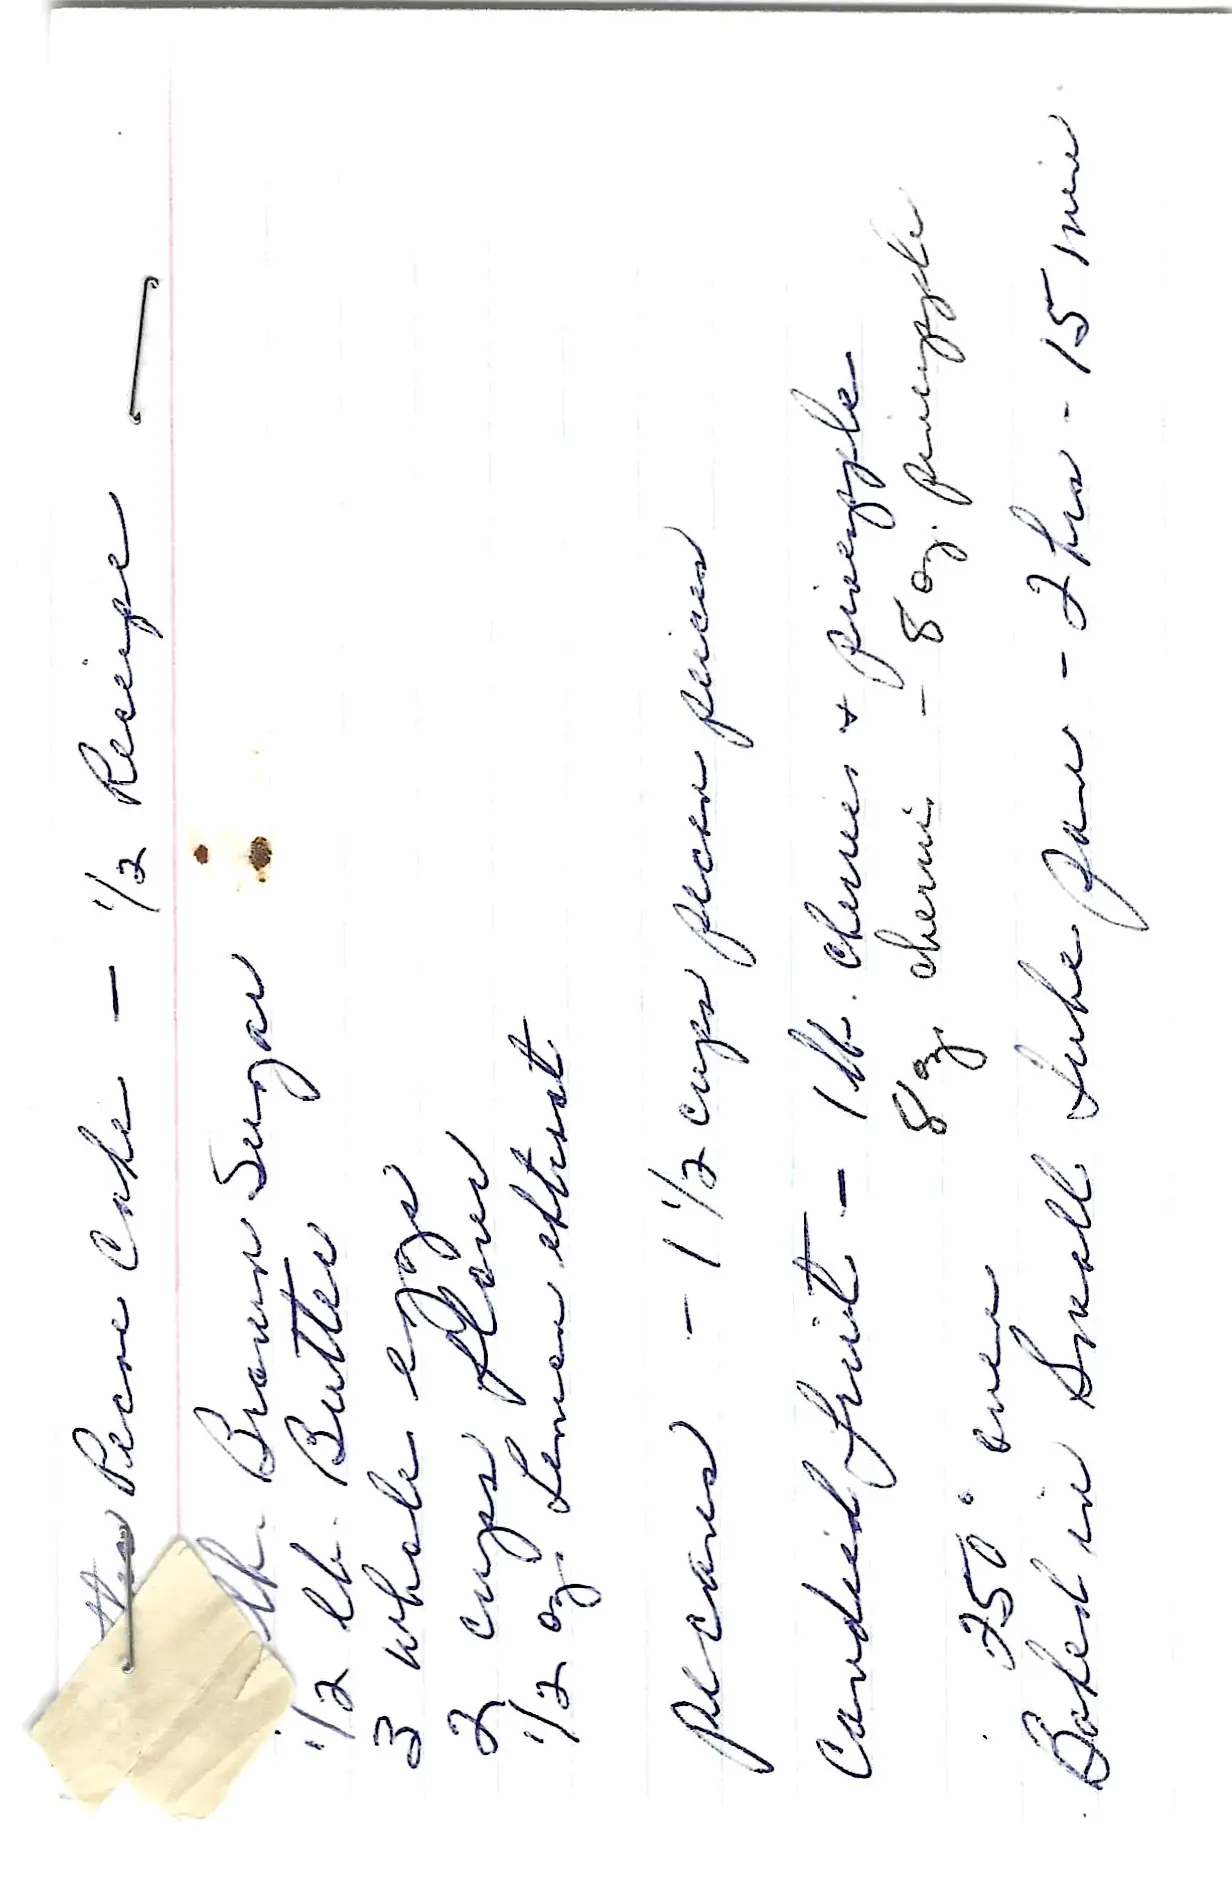 Pecan Cake — 1/2 Receipe —
lb. Brown Sugar
1/2 lb. Butter
3 whole eggs
2 cups flour
1/2 oz. Lemon extract
pecans - 1 1/2 cups pecan peices
Candied fruit - 1 lb. cherries + pineapple
8 oz. cherri. - 8 oz. pineapple
250° oven
Baked in Small tube pan - 2 hrs - 15 min